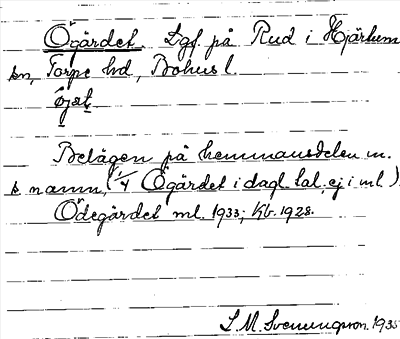 Ögärdet. Lgf på Rud i Hjärtum
sn, Torpe hd, Bohusl.
Belägen på hemmansdelen m.
s. namn, (1/4 Ögärdet i dagl. tal, ej i ml.)
Ödegärdet ml. 1933; Kb. 1928.
S. M. Svenungsson. 1935